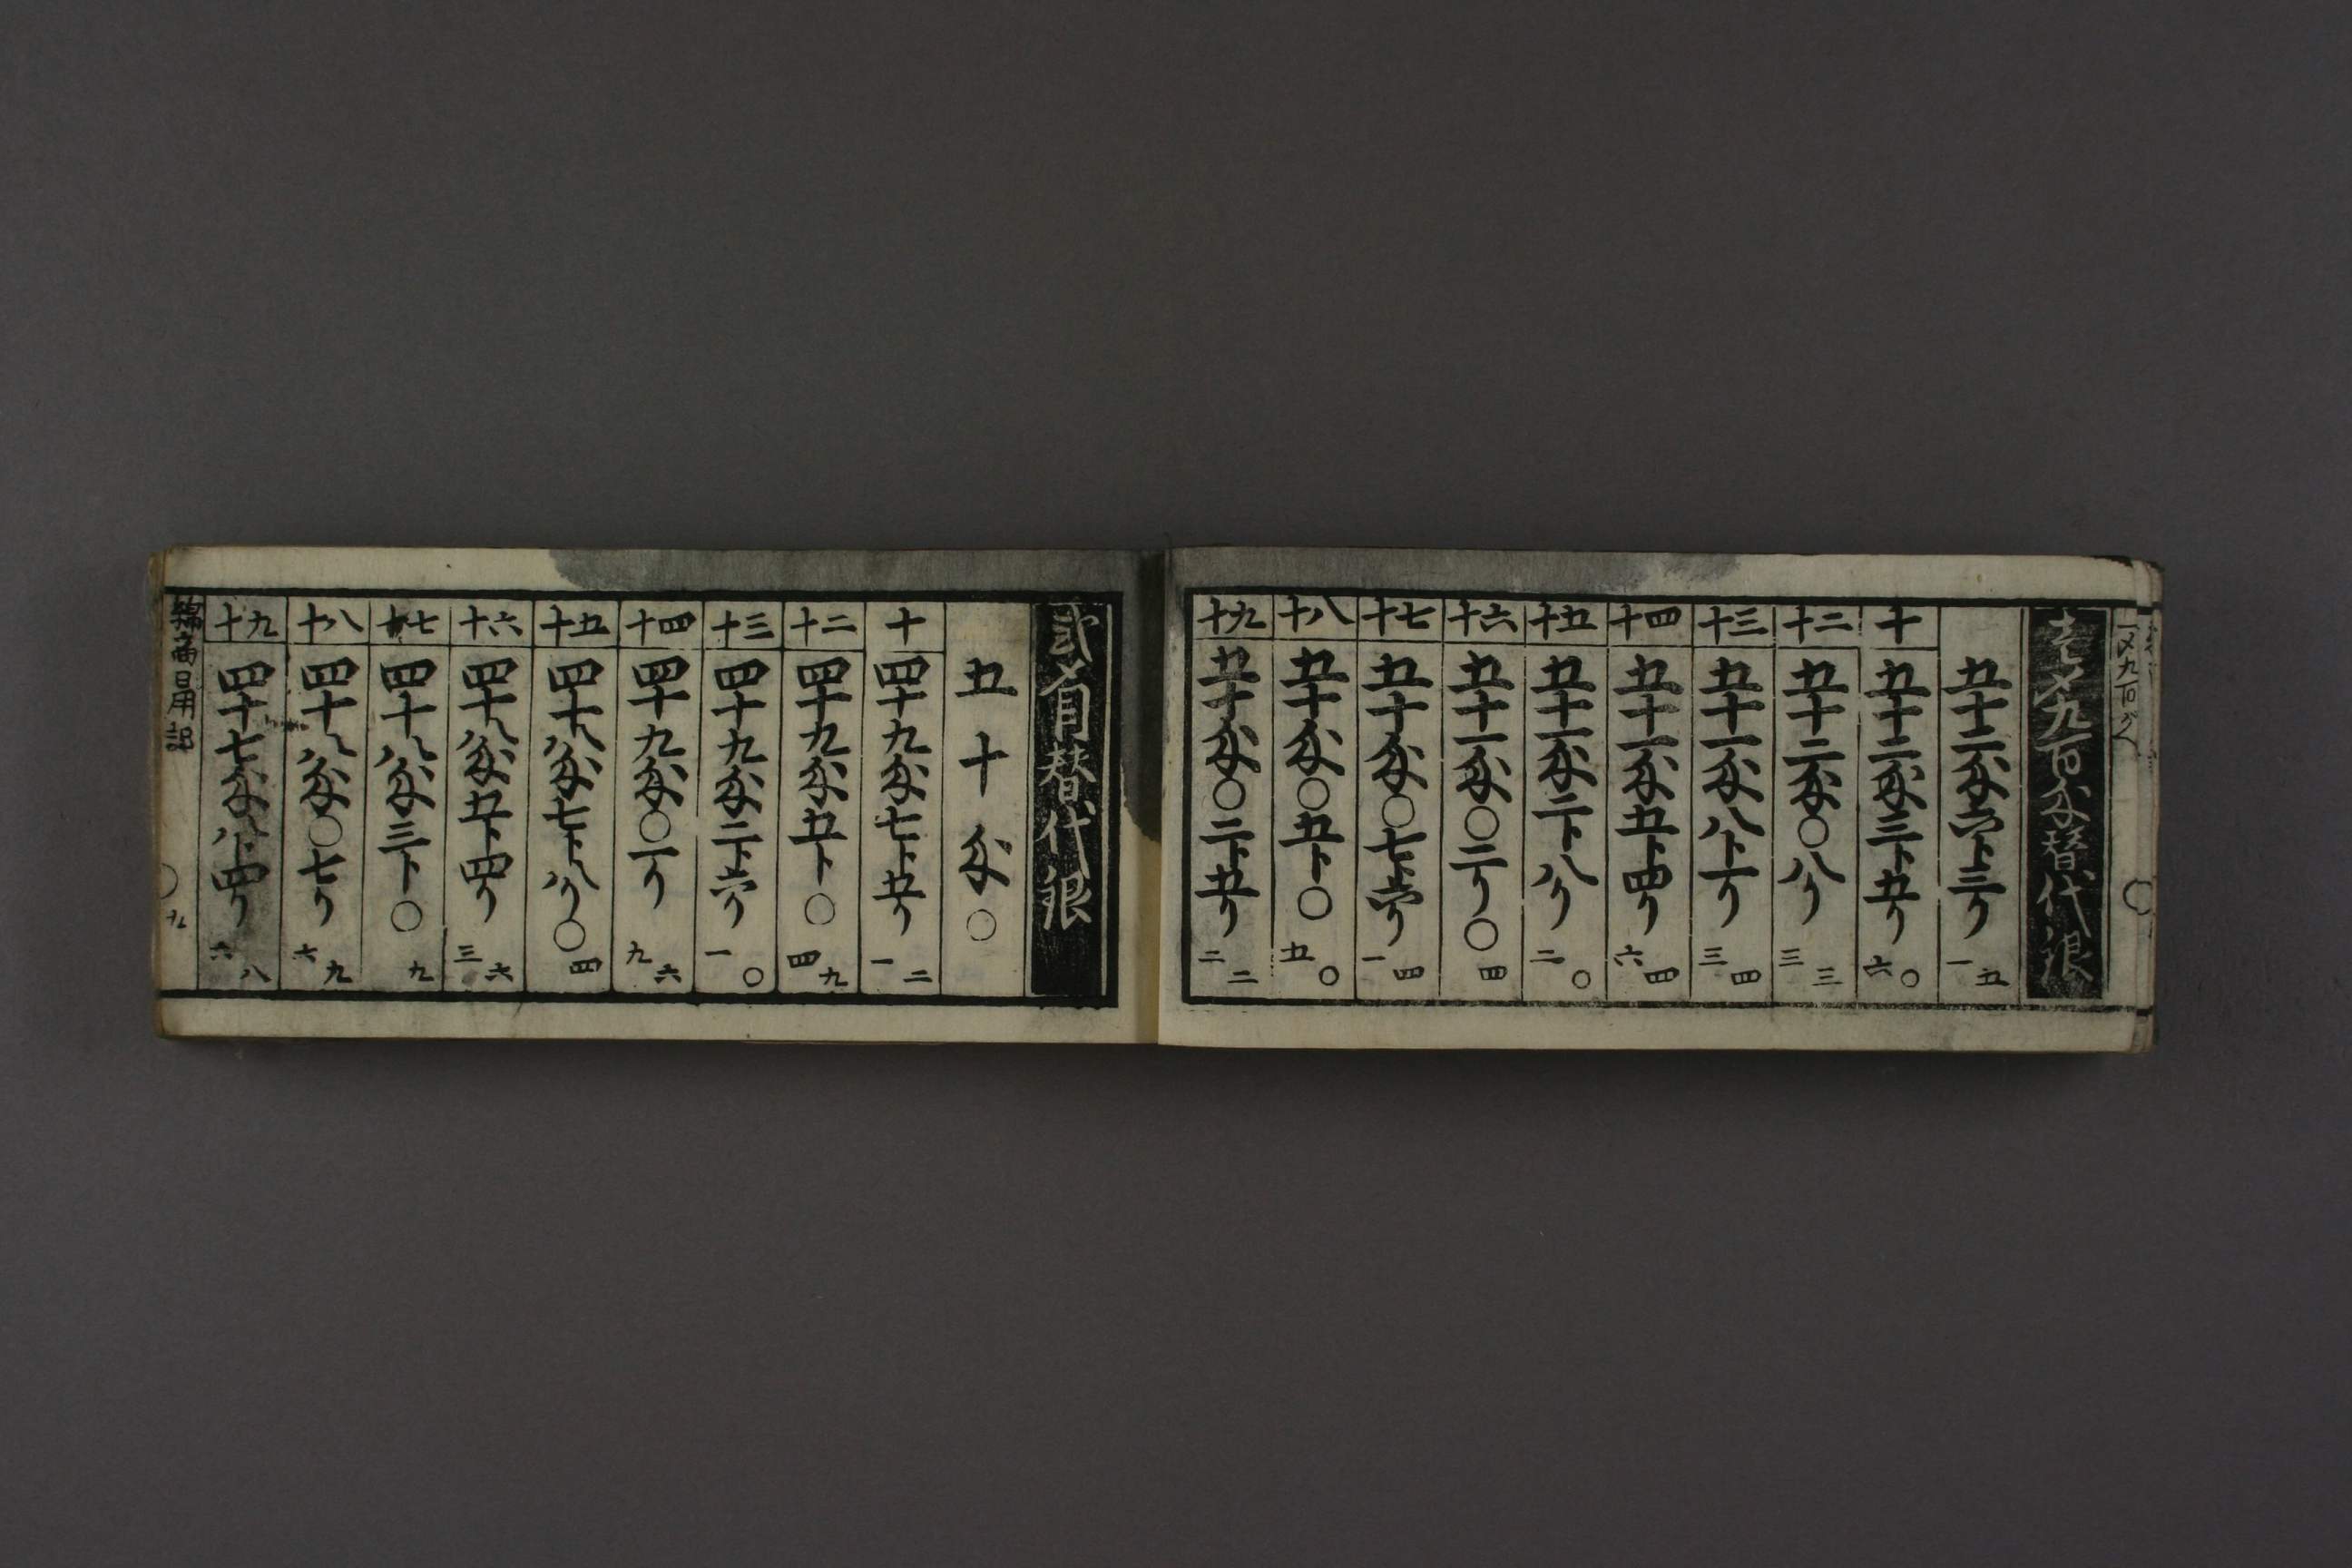 一メ九百匁かへ
壱メ九百匁替代銀
五十二匁六卜三り一五
十 五十二匁三卜五り六〇
二十 五十二匁〇八り三三
三十 五十一匁八卜一り三四
四十 五十一匁五卜四り六四
五十 五十一匁二卜八り二〇
六十 五十一匁〇二り〇四
七十 五十匁〇七卜六り一四
八十 五十匁〇五卜〇五〇
九十 五十匁〇二卜五り二二
弐貫目替代銀
五十匁〇
十 四十九匁七卜五り一二
二十 四十九匁五卜〇四九
三十 四十九匁二卜六り一〇
四十 四十九匁〇一り九六
五十 四十八匁七卜八り〇四
六十 四十八匁五卜四り三六
七十 四十八匁三卜〇九
八十 四十八匁〇七り六九
九十 四十七匁八卜四り六八
綿商日用記 〇 十九